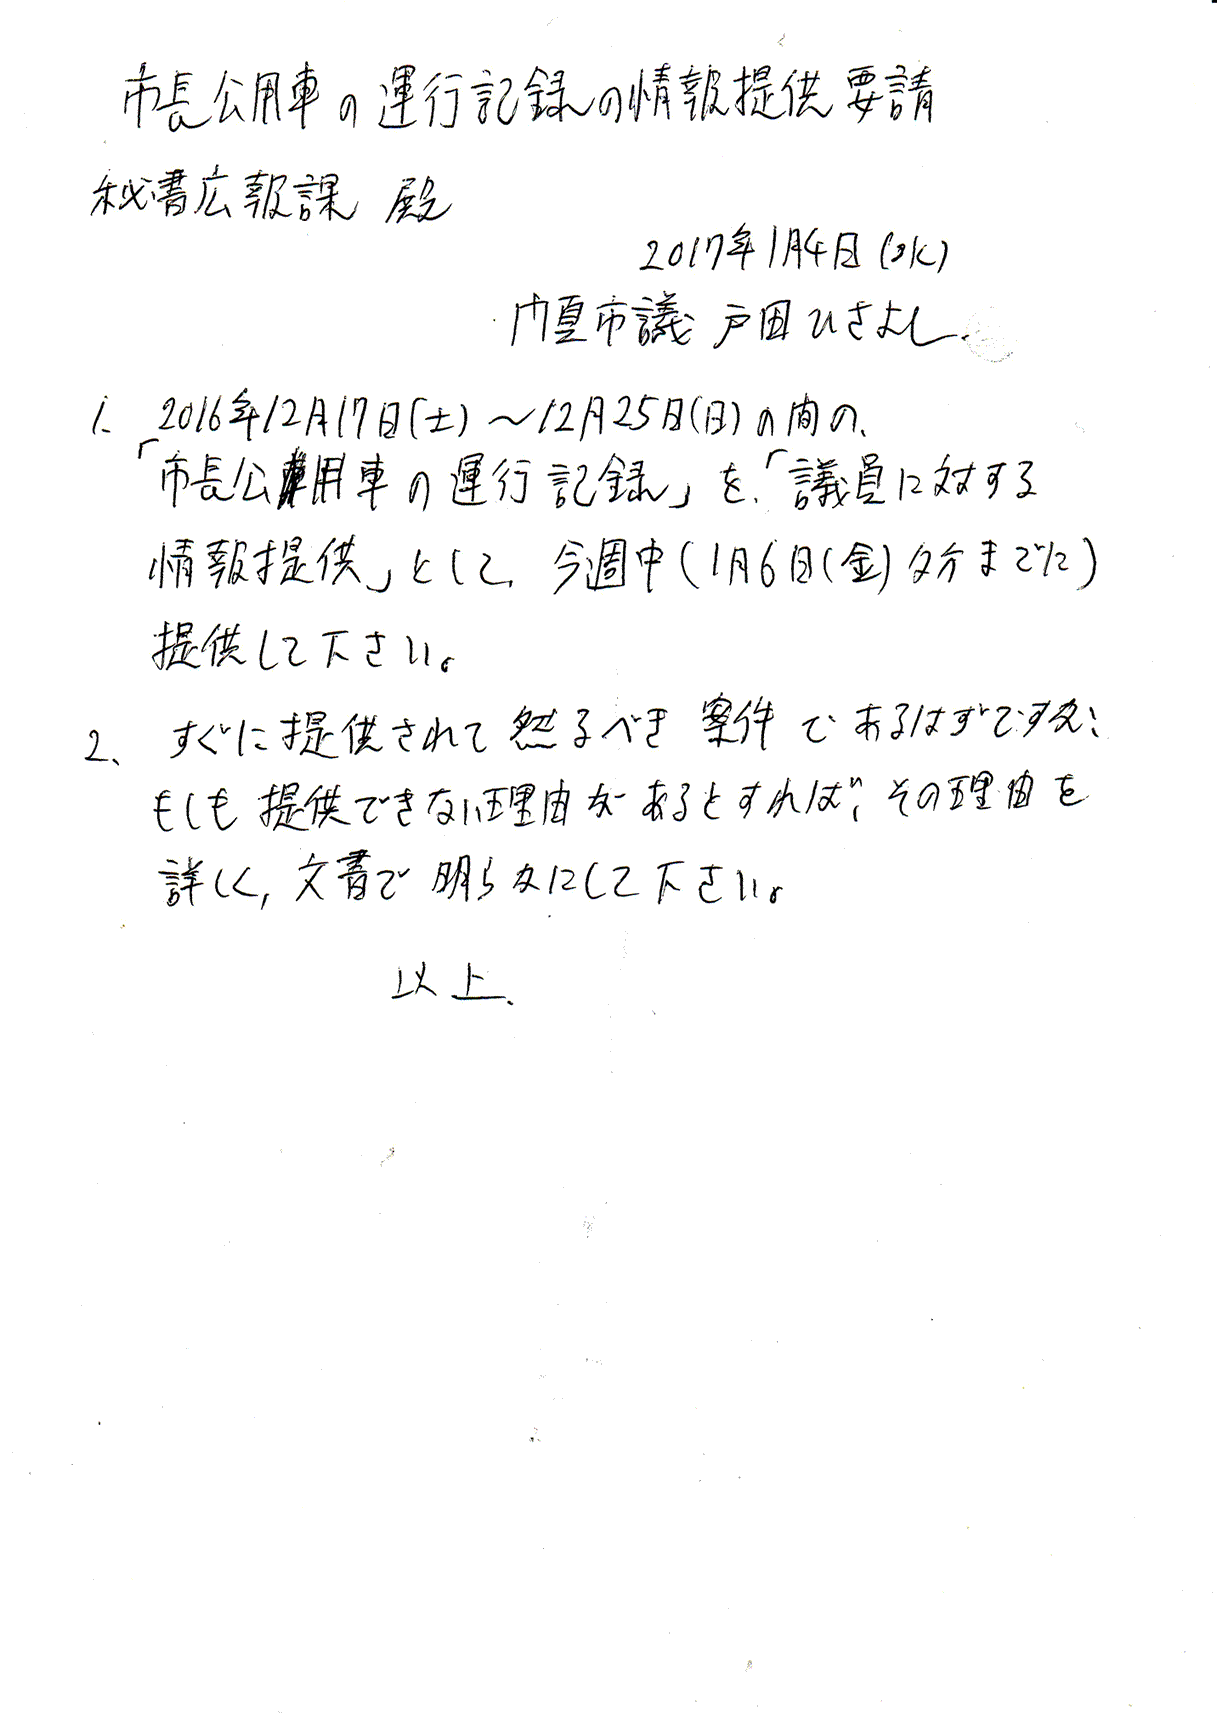 市長公用車の運行記録の情報提供要請
秘書広報課 殿
2017年1月4日(水)
門真市議 戸田ひさよし
1. 2016年12月17日(土)～12月25日(日)の間の、
「市長公用車の運行記録」を、「議員に対する
情報提供」として、今週中(1月6日(金)夕方までに)
提供して下さい。
2、すぐに提供されて然るべき案件であるはずですが、
もしも提供できない理由があるとすれば、その理由を
詳しく、文書で明らかにして下さい。
以上.